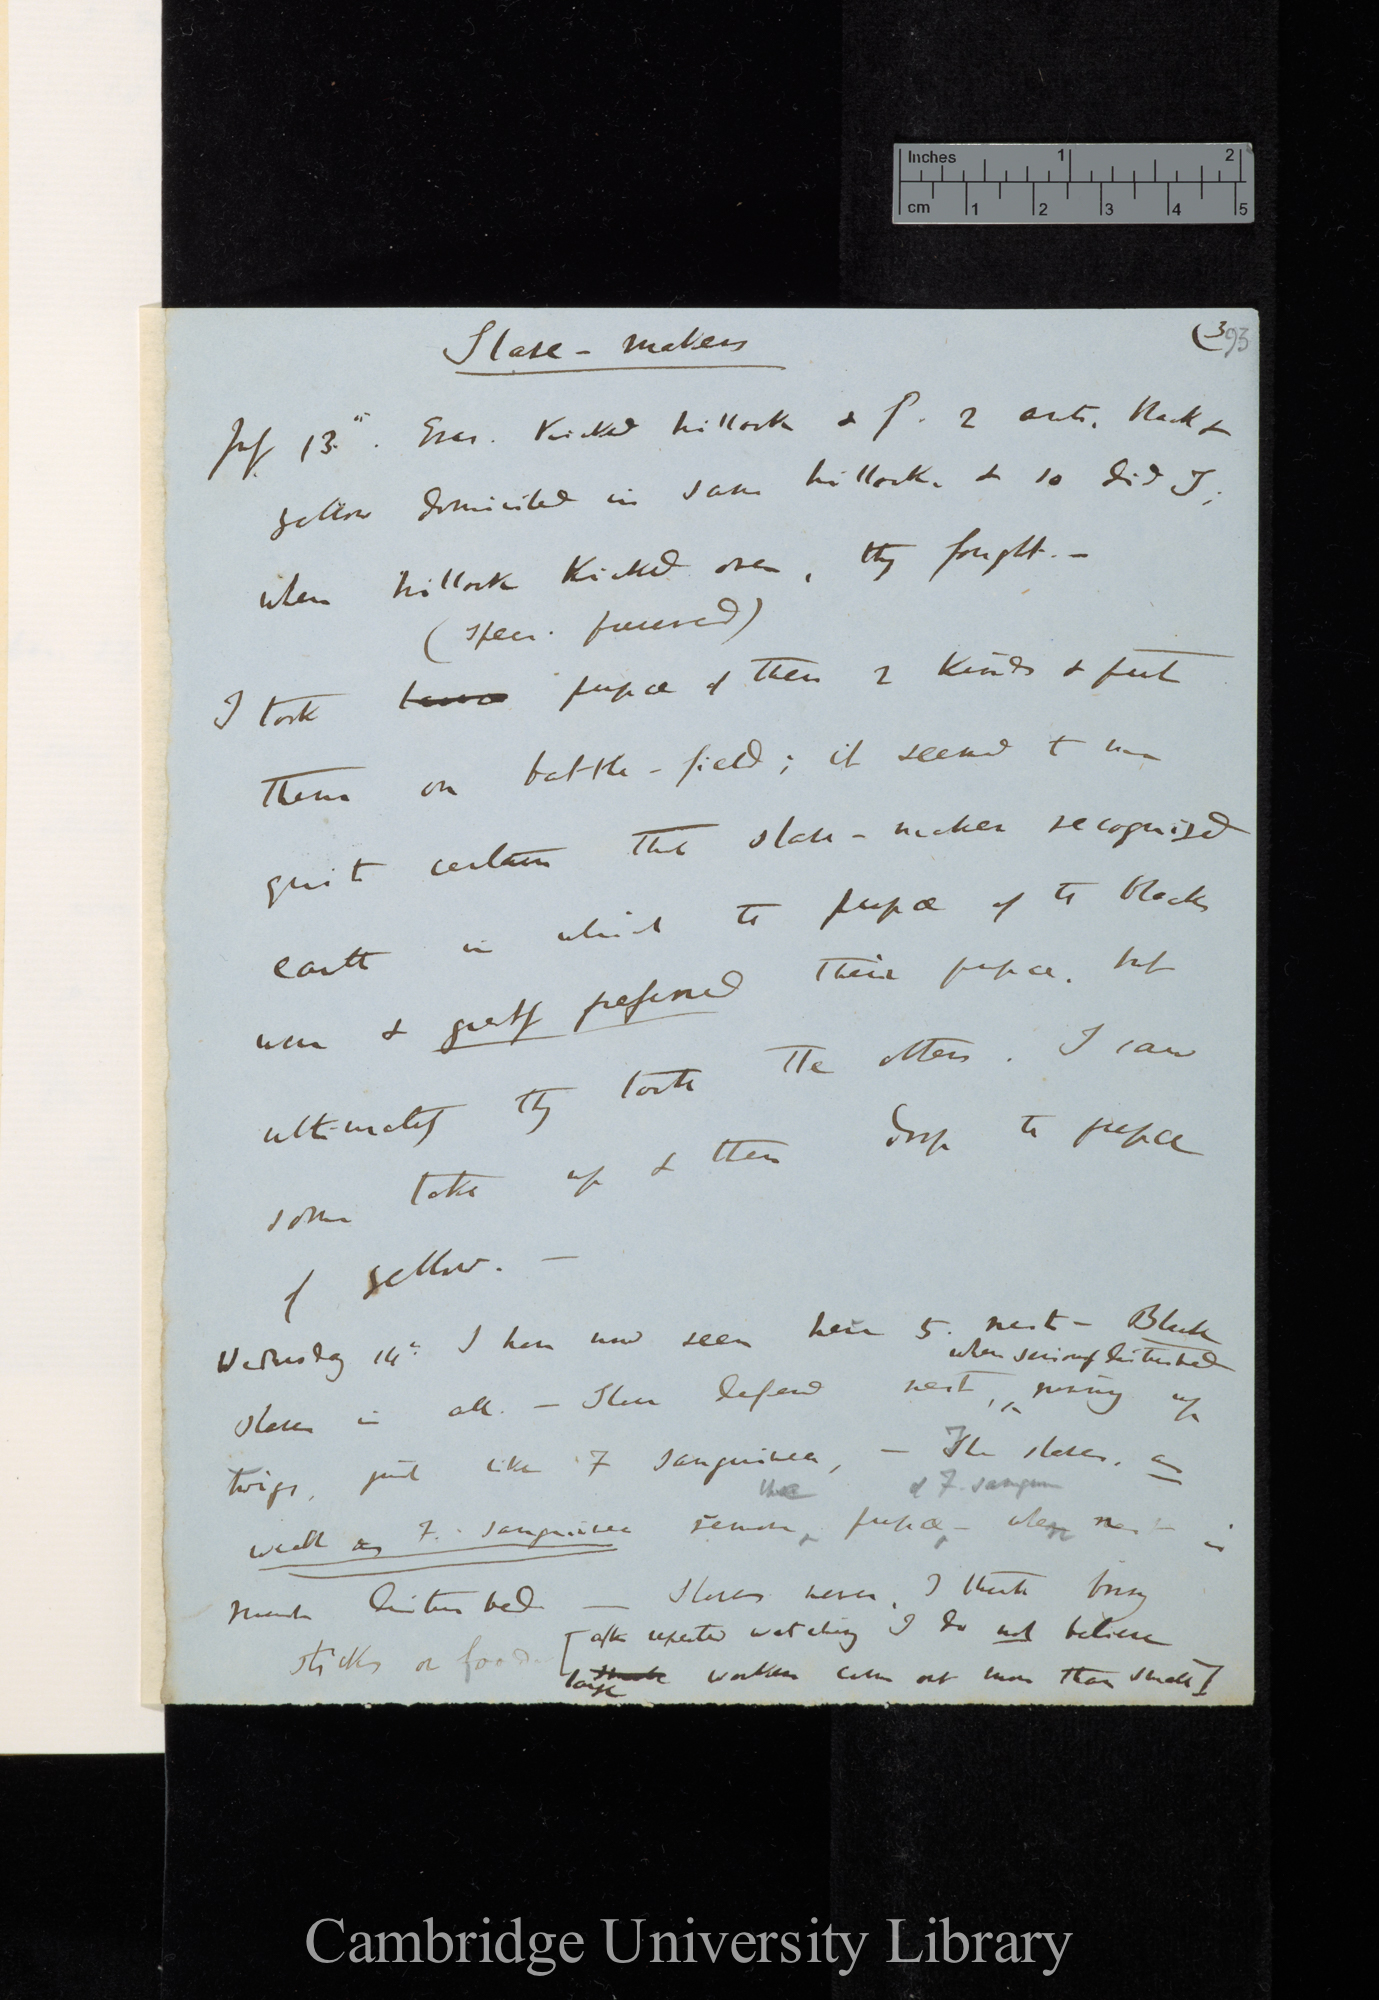 Inches 1 2
cm 1 2 3 4 5
Slave-makers
(3 93
July 13th. Eras. Kicked hillock & f. 2 ants, black &
yellow domiciled in same hillock. & so did I;
when hillock kicked over, they fought. —
(Spec. preserved)
I took pupæ of these 2 kinds & put
them on battle-field; it seemed to me
quite certain that slave-maker recognised
earth in which the pupæ of the blacks
were & greatly preferred their pupæ, but
ultimately they took the others. I saw
some take up & then drop the pupæ
of yellow. —
Wednesday 14th I have now seen here 5. nests — Black
when seriously disturbed
slaves in all. — Slaves defend nest, pushing up
twigs, just like F sanguinea, — The slaves, as
of F. sanguin
well as F. sanguinea remove pupæ — when nest is
much disturbed — Slaves never, I think bring
sticks or food. [after repeated watching I do not believe
large workers come out more than small]
Cambridge University Library